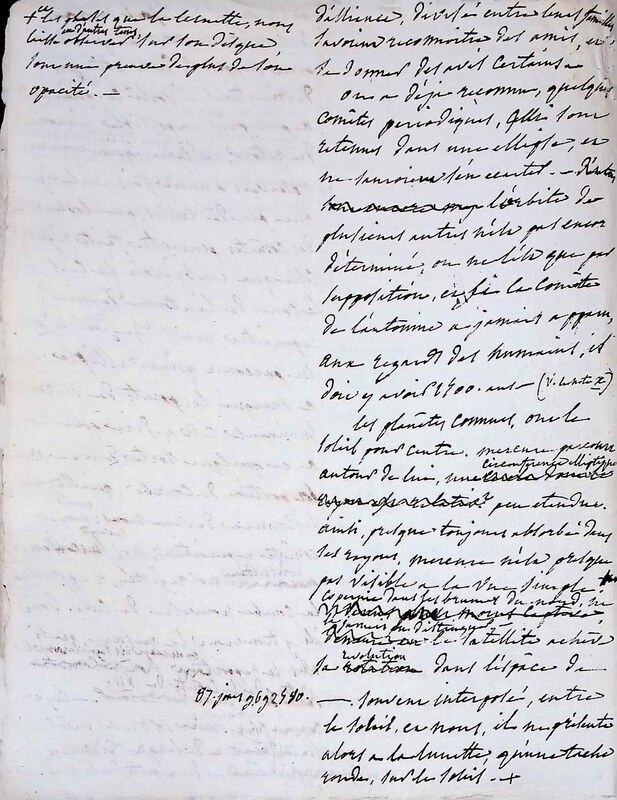 + les phases que la lunette, nous
en d'autres tems
laisse observer sur son disque,
sont une preuve de plus de son
opacité. —
d'alliance, divisé entre leurs familles
savoient reconnoitre des amis, et
se donner des avis certains
on a deja reconnu, quelques
comètes periodiques, qui sont
retenues dans une ellipse, et
ne sauroient s'en ecarter. —
l'orbite de
plusieurs autres n'est pas encor
déterminé, ou ne l'est que par
supposition, et si la Comète
de l'automne a jamais apparu,
aux regards des humains, il
doit y avoir ans — (V. la note x)
les planètes connues, ont le
soleil pour centre. mercure parcourt
autour de lui, une circonférence elliptique
peu etendue.
ainsi, presque toujours absorbé dans
ses rayons, mercure n'est presque
pas visible a la vue simple
copernic dans les brumes du nord, ne
le satellite achève
sa revolution dans l'espace de
87. jours
—. souvent interposé, entre
le soleil, et nous, il ne présente
alors a la lunette, qu'une tache
ronde, sur le soleil. +